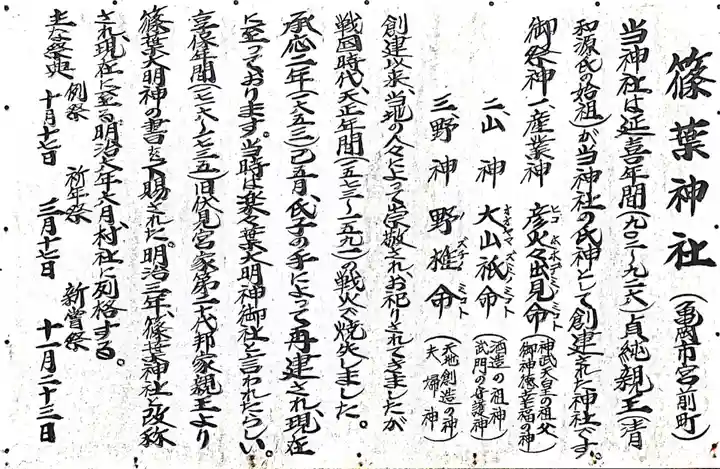 篠葉神社(亀岡市宮前町)
当神社は延喜年間(九〇二〜九二六)貞純親王(清
和源氏の始祖)が当神社の氏神として創建された神社です。
御祭神 一、産業神 彦火々出見命 ヒコホホデミノミコト (神武天皇の祖父 御神徳幸福の神)
二、山神 大山祇命 オオヤマズミノミコト (酒造の祖神 武門の守護神)
三、野神 野椎命 ノズチノミコト (天地創造の神 夫婦神)
創建以来、当地の人々によって崇敬され、お祀りされてきましたが
戦国時代、天正年間(一五七三〜一五九一)の戦火で焼失しました。
承応二年(一六五三)己五月、氏子の手によって再建され、現在
に至っております。当時は楽々葉大明神御社と言われたらしい。
享保年間(一七一六〜一七三五)旧伏見宮家第二十代邦家親王より
篠葉大明神の書を下賜された。明治三年、篠葉神社と改称
され、現在に至る。明治六年六月、村社に列格する。
主な祭典 例祭 十月十七日 祈年祭 三月十七日 新嘗祭 十一月二十三日